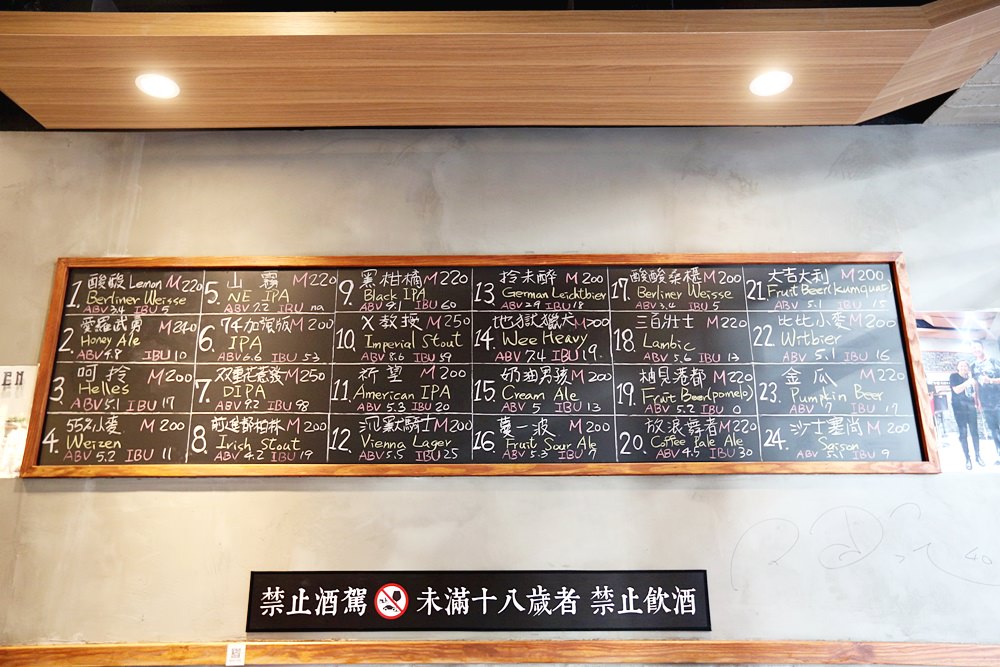 1. 酸酸 Lemon M220
Berliner Weisse
ABV 3.4 IBU 5
2. 愛羅武勇 M240
Honey Ale
ABV 4.8 IBU 10
3. 呵拎 M200
Helles
ABV 5.1 IBU 17
4. 55小麥 M200
Weizen
ABV 5.2 IBU 11
5. 山霧 M220
NE IPA
ABV 7.2 IBU na
6. 74加強版 M200
IPA
ABV 6.6 IBU 53
7. M250
DIPA
ABV 9.2 IBU 98
8. 前進都柏林 M200
Irish Stout
ABV 4.2 IBU 19
9. 黑柑橘 M220
Black IPA
ABV 9.1 IBU 60
10. X教授 M250
Imperial Stout
ABV 8.6 IBU 59
11. 祈望 M200
American IPA
ABV 5.3 IBU 20
12. 沉默騎士 M200
Vienna Lager
ABV 5.5 IBU 25
13. 拎未醉 M200
German Leichtbier
ABV 2.9 IBU 18
14. 地獄獵犬 M200
Wee Heavy
ABV 7.4 IBU 19
15. 奶油男孩 M200
Cream Ale
ABV 5 IBU 13
16. 莓一波 M200
Fruit Sour Ale
ABV 5.3 IBU 7
17. 酸酸桑椹 M200
Berliner Weisse
ABV 3.6 IBU 5
18. 三百壯士 M220
Lambic
ABV 5.6 IBU 13
19. 柚見港都 M220
Fruit Beer(pomelo)
ABV 5.2 IBU 0
20. 放浪舞者 M220
Coffee Pale Ale
ABV 4.5 IBU 30
21. 大吉大利 M200
Fruit Beer(kumquat)
ABV 5.1 IBU 15
22. 比比小麥 M200
Witbier
ABV 5.1 IBU 16
23. 金瓜 M220
Pumpkin Beer
ABV 7 IBU 17
24. 沙士塞尚 M200
Saison
ABV 5.5 IBU 9
禁止酒駕 未滿十八歲者 禁止飲酒